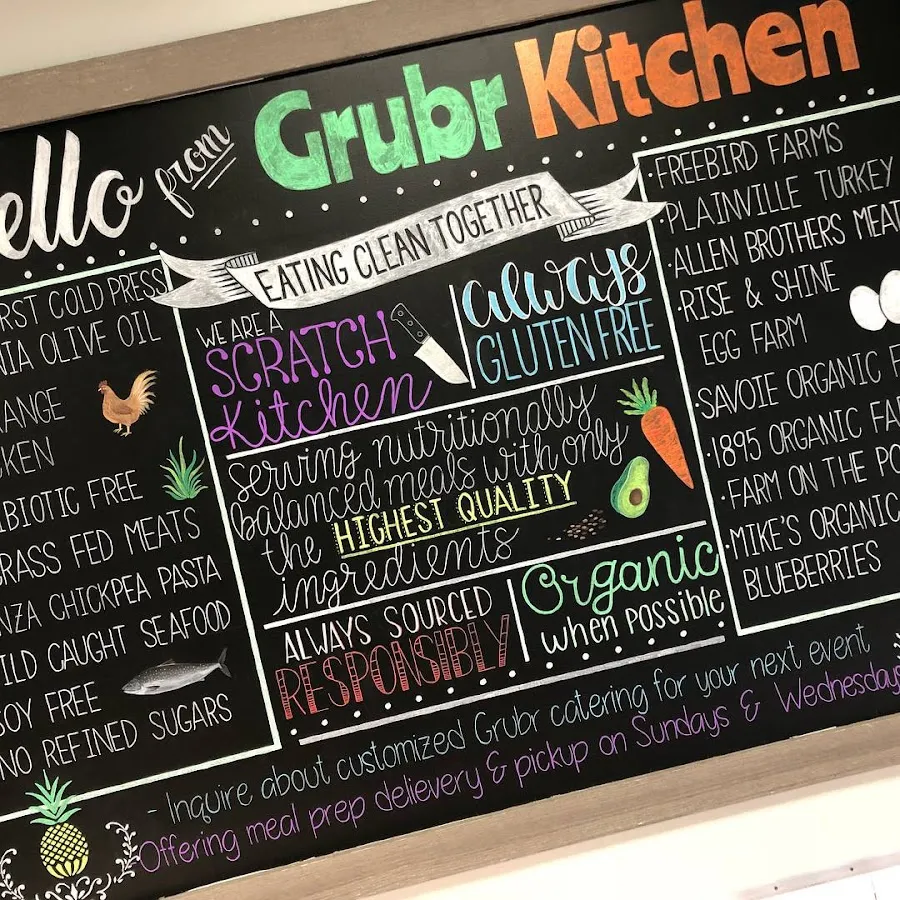 ello from Grubr Kitchen
EATING CLEAN TOGETHER
RST COLD PRESS
NIA OLIVE OIL
RANGE
CKEN
IBIOTIC FREE
GRASS FED MEATS
NZA CHICKPEA PASTA
ILD CAUGHT SEAFOOD
SOY FREE
NO REFINED SUGARS
WE ARE A
SCRATCH
Kitchen
always
GLUTEN FREE
Serving nutritionally
balanced meals with only
the HIGHEST QUALITY
ingredients
ALWAYS SOURCED
RESPONSIBLY
Organic
when possible
·FREEBIRD FARMS
·PLAINVILLE TURKEY
·ALLEN BROTHERS MEAT
·RISE & SHINE
EGG FARM
·SAVOIE ORGANIC F
·1895 ORGANIC FA
·FARM ON THE PO
·MIKE'S ORGANIC
BLUEBERRIES
- Inquire about customized Grubr catering for your next event
Offering meal prep delievery & pickup on Sundays & Wednesdays